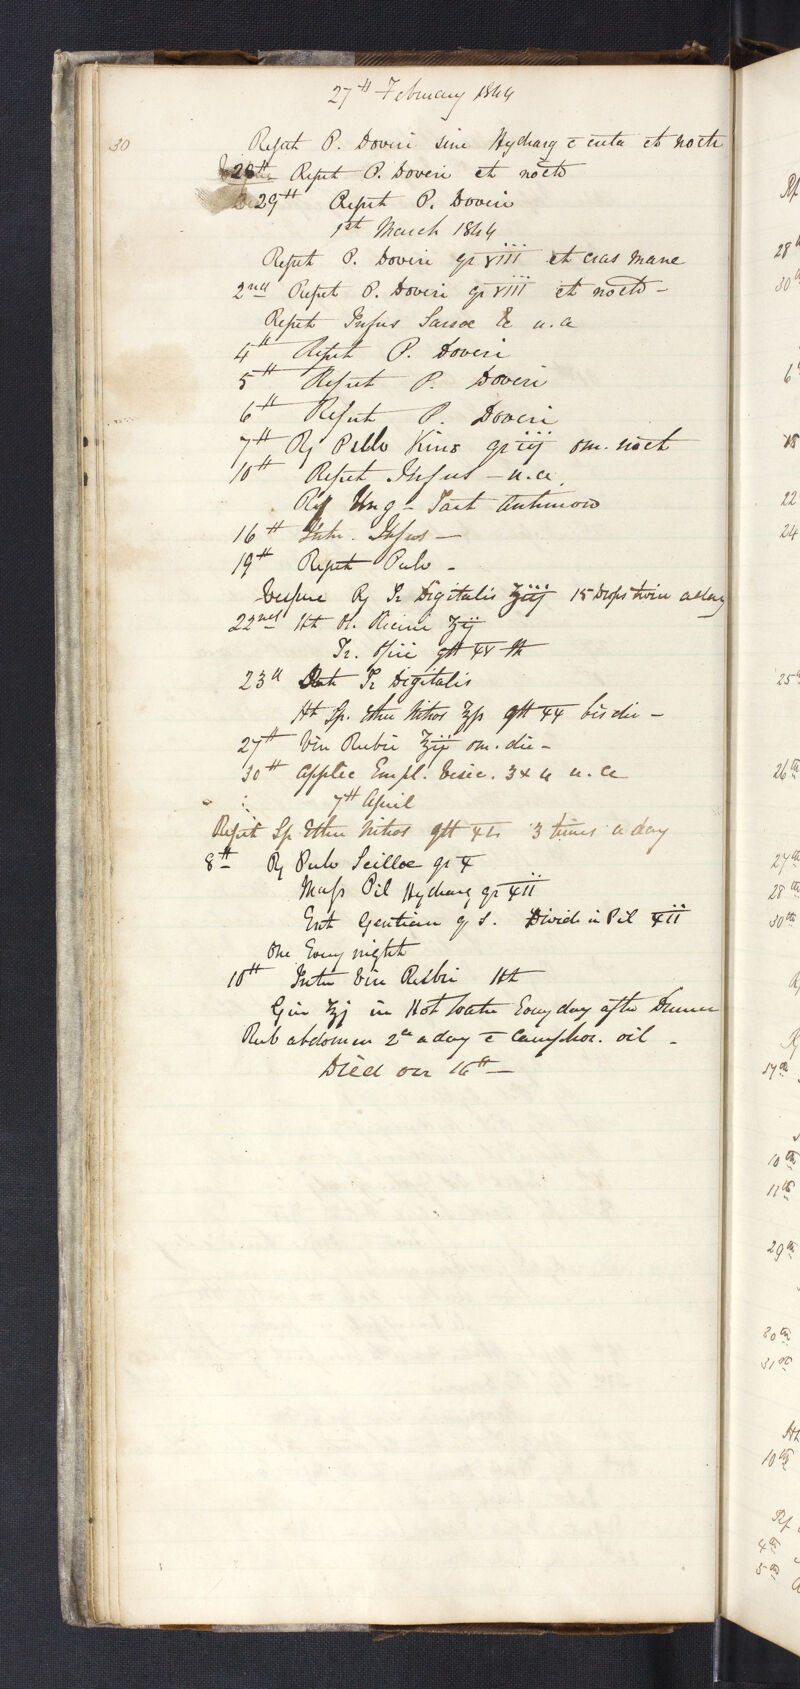 27th February 1844
30
Repeat P. Doveri sine Hydrarg c creta et nocte
28th Repet P. Doveri et nocte
29th Repet P. Doveri
1st March 1844
Repet P. Doveri gr viii et cras mane
2nd Repet P. Doveri gr viii et nocte -
Repet Infus Sarsae &c u.a
4th Repet P. Doveri
5th Repet P. Doveri
6th Repet P. Doveri
7th Rj Pulv Kino gr iij om. noct
10th Repet Infus - u.a.
Rj Ung - Tart Antimon
16th Intr. Infus -
19th Repet Pulv -
Vespere Rj Tr Digitalis ʒiij 15 Drops twice a day
22nd Ht Ol. Ricini ʒij
Tr. Opii gtt xv
23d Tr Digitalis
Ht Sp. Ether Nitros ʒſs gtt xx bis die -
27th Vin Rubri ℥ij om. die -
30th Applic Empl. Vesic. 3 x 4 u.a
7th April
Repet Sp Ether Nitros gtt xx 3 times a day
8th Rj Pulv Scillae gr x
Mass Pil Hydrarg gr xii
Ext Gentian q s. Divide in Pil xii
One Every night
10th Intr Vin Rubri Ht
Gin ℥j in Hot Water Every day after Dinner
Rub abdomen 2ce a day c Camphor. oil -
Died on 16th -
28
30
6
18
22
24
25
26th
27th
28th
30th
17th
10th
11th
29th
30th
31st
10th
4th
5th